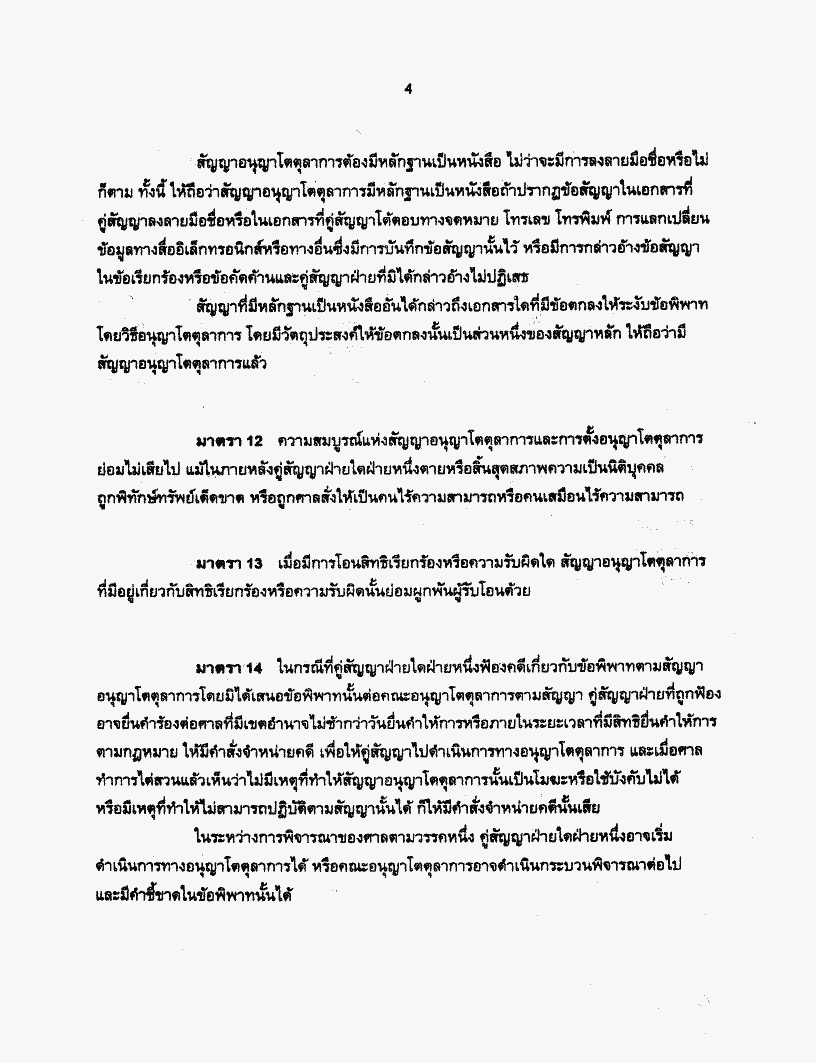 4
สัญญาอนุญาโตตุลาการต้องมีหลักฐานเป็นหนังสือ ไม่ว่าจะมีการลงลายมือชื่อหรือไม่
ก็ตาม ทั้งนี้ ให้ถือว่าสัญญาอนุญาโตตุลาการมีหลักฐานเป็นหนังสือถ้าปรากฏข้อสัญญาในเอกสารที่
คู่สัญญาลงลายมือชื่อหรือในเอกสารที่คู่สัญญาโต้ตอบทางจดหมาย โทรเลข โทรพิมพ์ การแลกเปลี่ยน
ข้อมูลทางสื่ออิเล็กทรอนิกส์หรือทางอื่นซึ่งมีการบันทึกข้อสัญญานั้นไว้ หรือมีการกล่าวอ้างข้อสัญญา
ในข้อเรียกร้องหรือข้อคัดค้านและคู่สัญญาฝ่ายที่มิได้กล่าวอ้างไม่ปฏิเสธ
สัญญาที่มีหลักฐานเป็นหนังสืออันได้กล่าวถึงเอกสารใดที่มีข้อตกลงให้ระงับข้อพิพาท
โดยวิธีอนุญาโตตุลาการ โดยมีวัตถุประสงค์ให้ข้อตกลงนั้นเป็นส่วนหนึ่งของสัญญาหลัก ให้ถือว่ามี
สัญญาอนุญาโตตุลาการแล้ว
มาตรา 12 ความสมบูรณ์แห่งสัญญาอนุญาโตตุลาการและการตั้งอนุญาโตตุลาการ
ย่อมไม่เสียไป แม้ในภายหลังคู่สัญญาฝ่ายใดฝ่ายหนึ่งตายหรือสิ้นสุดสภาพความเป็นนิติบุคคล
ถูกพิทักษ์ทรัพย์เด็ดขาด หรือถูกศาลสั่งให้เป็นคนไร้ความสามารถหรือคนเสมือนไร้ความสามารถ
มาตรา 13 เมื่อมีการโอนสิทธิเรียกร้องหรือความรับผิดใด สัญญาอนุญาโตตุลาการ
ที่มีอยู่เกี่ยวกับสิทธิเรียกร้องหรือความรับผิดนั้นย่อมผูกพันผู้รับโอนด้วย
มาตรา 14 ในกรณีที่คู่สัญญาฝ่ายใดฝ่ายหนึ่งฟ้องคดีเกี่ยวกับข้อพิพาทตามสัญญา
อนุญาโตตุลาการโดยมิได้เสนอข้อพิพาทนั้นต่อคณะอนุญาโตตุลาการตามสัญญา คู่สัญญาฝ่ายที่ถูกฟ้อง
อาจยื่นคำร้องต่อศาลที่มีเขตอำนาจไม่ช้ากว่าวันยื่นคำให้การหรือภายในระยะเวลาที่มีสิทธิยื่นคำให้การ
ตามกฎหมาย ให้มีคำสั่งจำหน่ายคดี เพื่อให้คู่สัญญาไปดำเนินการทางอนุญาโตตุลาการ และเมื่อศาล
ทำการไต่สวนแล้วเห็นว่าไม่มีเหตุที่ทำให้สัญญาอนุญาโตตุลาการนั้นเป็นโมฆะหรือใช้บังคับไม่ได้
หรือมีเหตุที่ทำให้ไม่สามารถปฏิบัติตามสัญญานั้นได้ ก็ให้มีคำสั่งจำหน่ายคดีนั้นเสีย
ในระหว่างการพิจารณาของศาลตามวรรคหนึ่ง คู่สัญญาฝ่ายใดฝ่ายหนึ่งอาจเริ่ม
ดำเนินการทางอนุญาโตตุลาการได้ หรือคณะอนุญาโตตุลาการอาจดำเนินกระบวนพิจารณาต่อไป
และมีคำชี้ขาดในข้อพิพาทนั้นได้